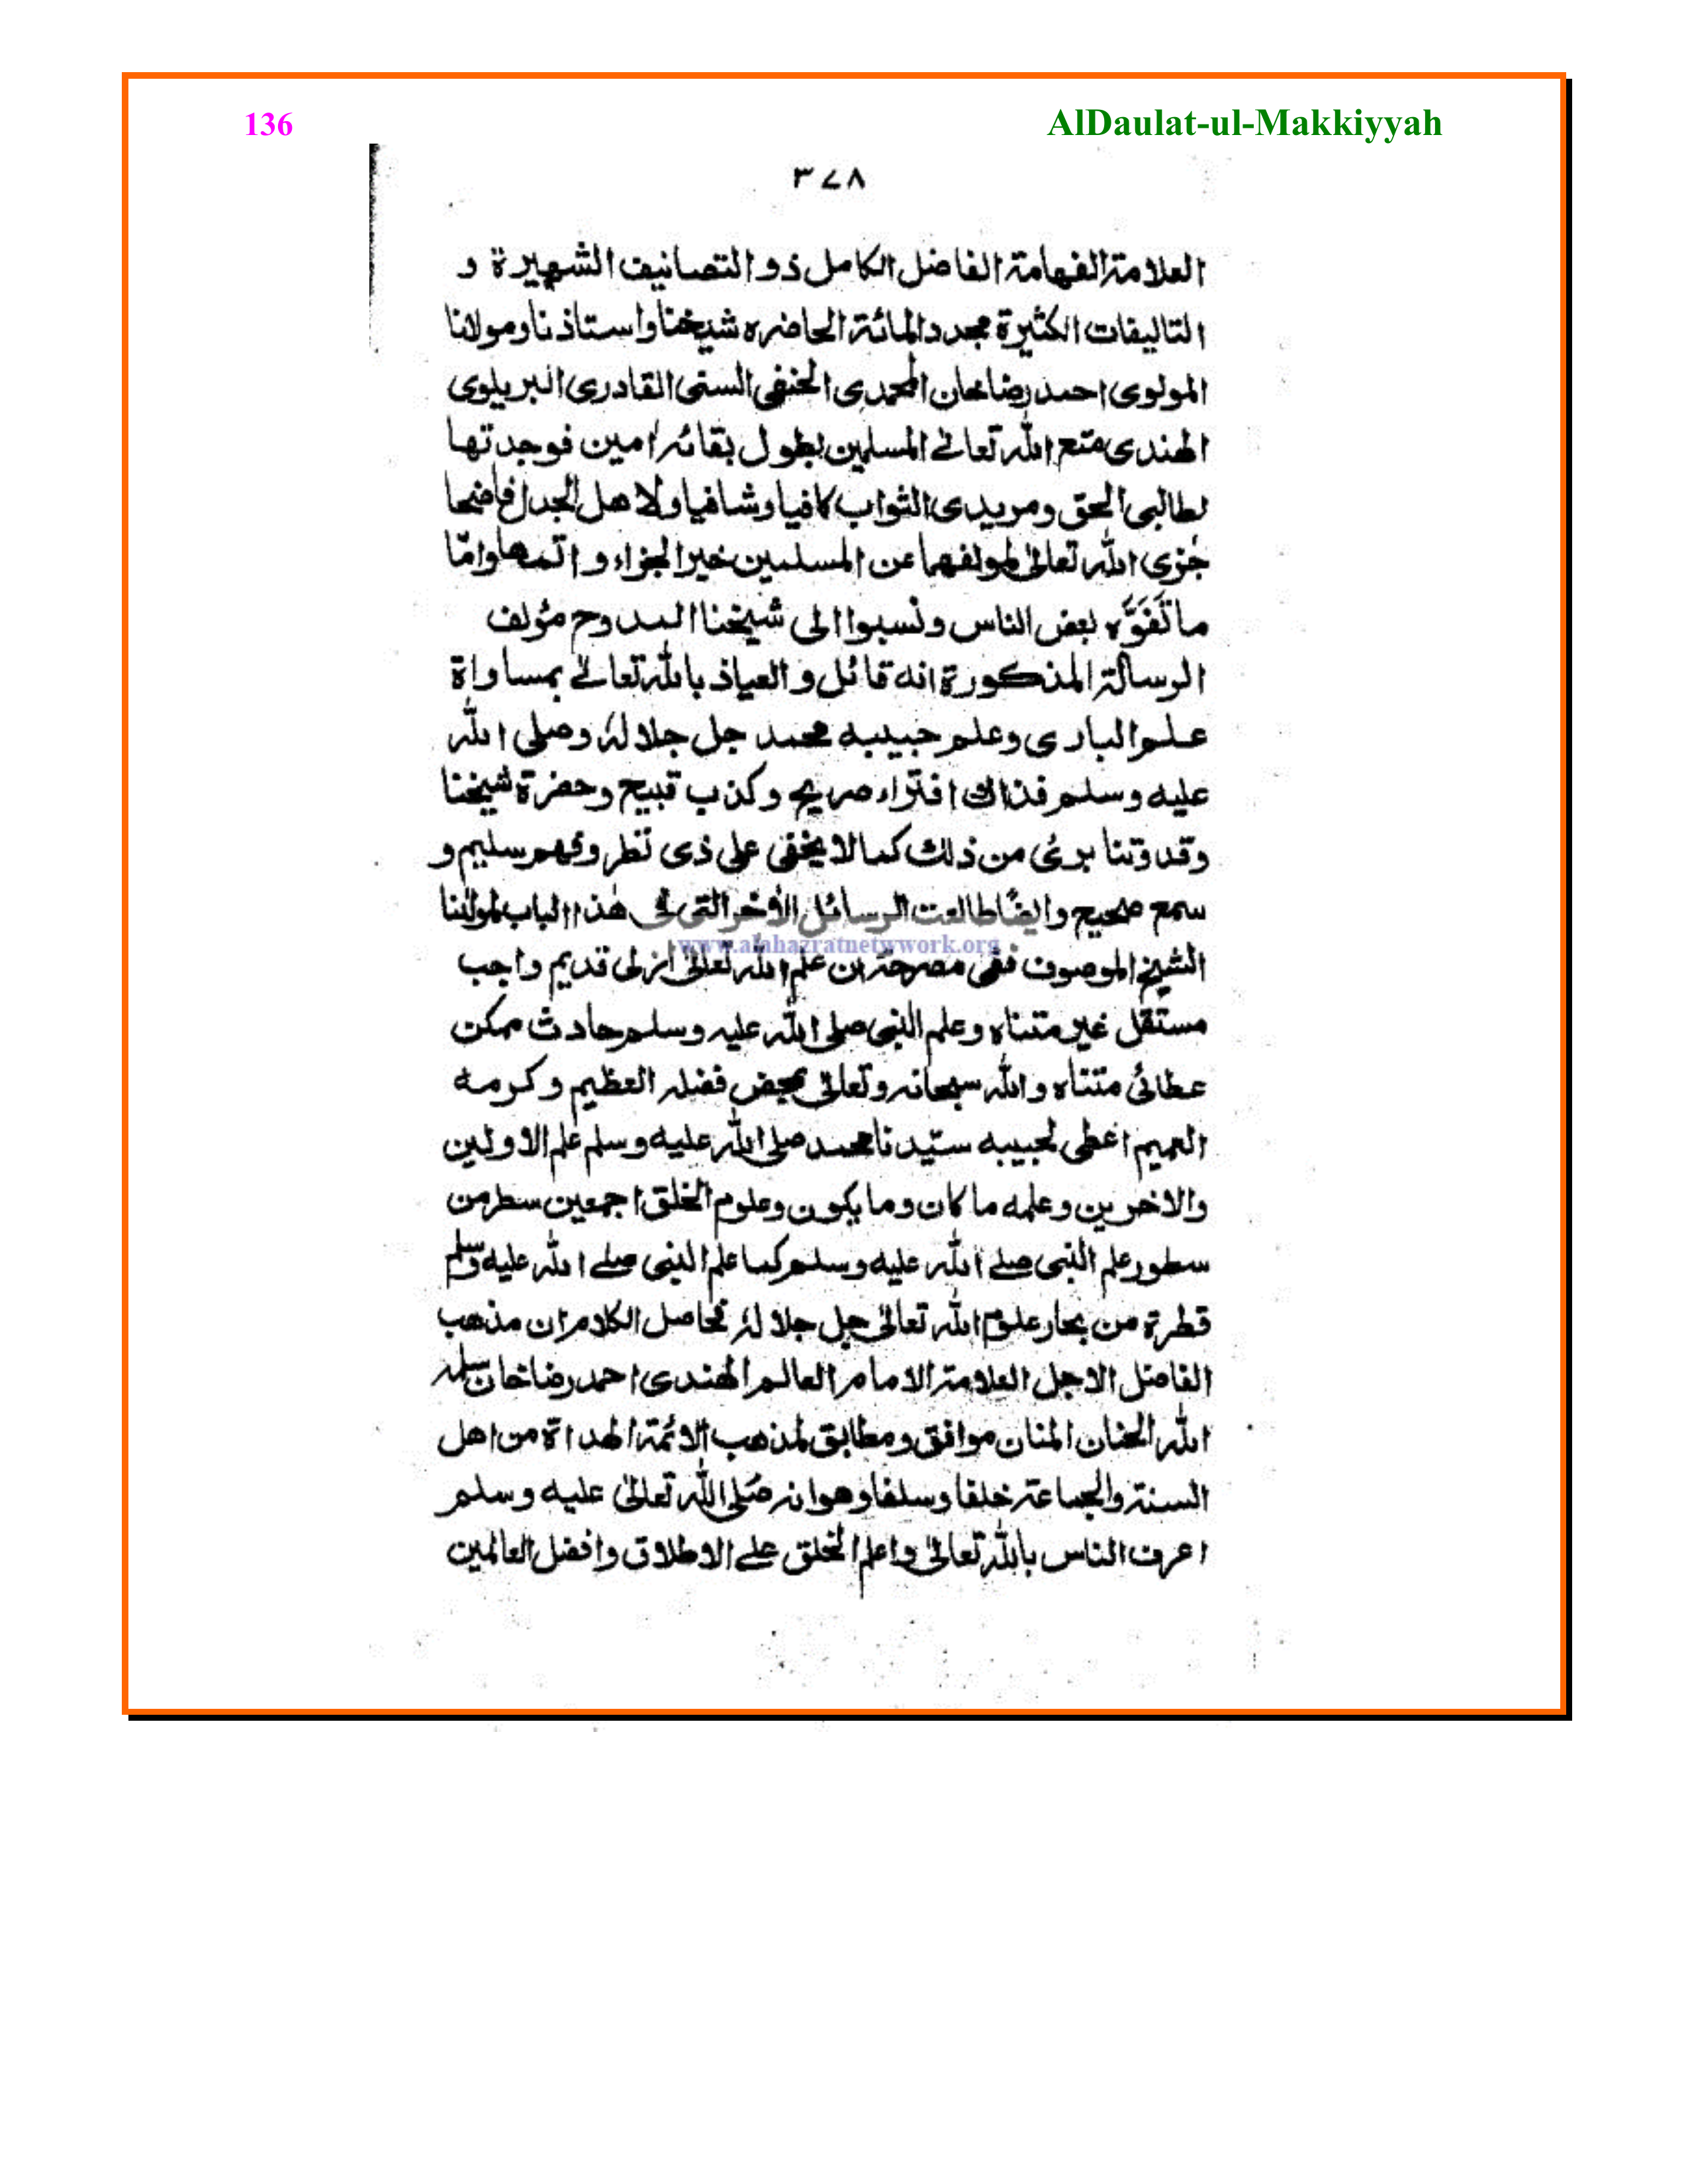 136 AlDaulat-ul-Makkiyyah
٣٧٨
العلامة الفهامة الفاضل الكامل ذو التصانيف الشهيرة و
التاليفات الكثيرة مجدد المائة الحاضره شيخنا واستاذنا ومولانا
المولوى احمد رضا خان المحمدى الحنفى السنى القادرى البريلوى
الهندى متع الله تعالے المسلمين بطول بقائه اٰمين فوجدتها
لطالبى الحق ومريدى الثواب كافيا وشافيا ولاهل الجدال فاضحا
جُزى الله تعالىٰ لمولفها عن المسلمين خير الجزاء و اتمها وامّا
ما تَفَوَّه بعض الناس ونسبوا الى شيخنا الممدوح مؤلف
الرسالة المذكورة انه قائل و العياذ بالله تعالےٰ بمساواة
علم البارى وعلم حبيبه محمد جل جلالهٗ وصلى الله
عليه وسلم فذاك افتراء صريح وكذب قبيح وحضرة شيخنا
وقدوتنا برئ من ذلك كما لا يخفى على ذى نظر وفهم سليم و
سمع صحيح وايضًا طالعت الرسائل الأخر التى فى هٰذا الباب لمولٰنا
www.alahazratnetwork.org
الشيخ الموصوف ففى مصرحة ان علم الله تعالىٰ ازلى قديم واجب
مستقل غير متناه وعلم النبى صلى الله عليه وسلم حادث ممكن
عطائى متناه والله سبحانه وتعالىٰ بمحض فضله العظيم وكرمه
العميم اعطى لحبيبه سيّدنا محمد صلى الله عليه وسلم علم الاولين
والاخرين وعلمه ما كان وما يكون وعلوم الخلق اجمعين سطر من
سطور علم النبى صلے الله عليه وسلم كما علم النبى صلے الله عليه وسلم
قطرة من بحار علوم الله تعالىٰ جل جلالهٗ فحاصل الكلام ان مذهب
الفاضل الاجل العلامة الامام العالم الهندى احمد رضا خان سلمه
الله الحنان المنان موافق ومطابق لمذهب الائمة الهداة من اهل
السنة والجماعة خلفا وسلفا وهوانه صَلى الله تعالىٰ عليه وسلم
اعرف الناس بالله تعالىٰ واعلم الخلق علے الاطلاق وافضل العالمين